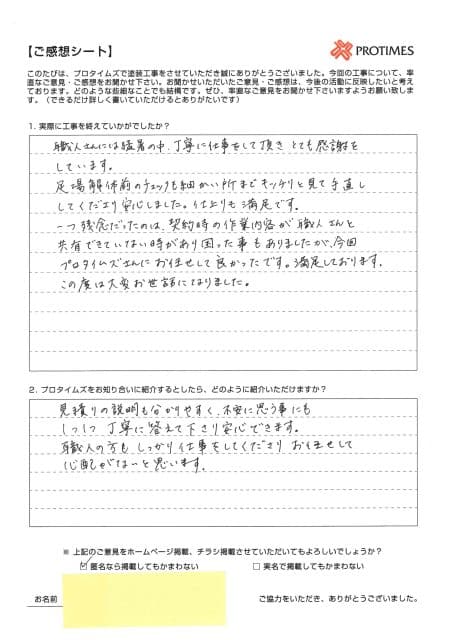 【ご感想シート】
PROTIMES
このたびは、プロタイムズで塗装工事をさせていただき誠にありがとうございました。今回の工事について、率
直なご意見・ご感想をお聞かせ下さい。お聞かせいただいたご意見・ご感想は、今後の活動に反映したいと考え
ております。どのような些細なことでも結構です。ぜひ、率直なご意見をお聞かせ下さいますようお願い致しま
す。（できるだけ詳しく書いていただけるとありがたいです）
1. 実際に工事を終えていかがでしたか？
職人さんには猛暑の中、丁寧に仕事をして頂き とても感謝を
しています。
足場解体前のチェックも細かい所までキッチリと見て手直し
してくださり安心しました。仕上りも満足です。
一つ残念だったのは、契約時の作業内容が職人さんと
共有できていない時があり困った事もありましたが、今回
プロタイムズさんにお任せして良かったです。満足しております。
この度は大変お世話になりました。
2. プロタイムズをお知り合いに紹介するとしたら、どのように紹介いただけますか？
見積りの説明も分かりやすく、不安に思う事にも
一つ一つ 丁寧に答えて下さり安心できます。
職人の方も しっかり仕事をしてくださり お任せして
心配がないと思います。
※ 上記のご意見をホームページ掲載、チラシ掲載させていただいてもよろしいでしょうか？
☑ 匿名なら掲載してもかまわない □ 実名で掲載してもかまわない
お名前
ご協力をいただき、ありがとうございました。